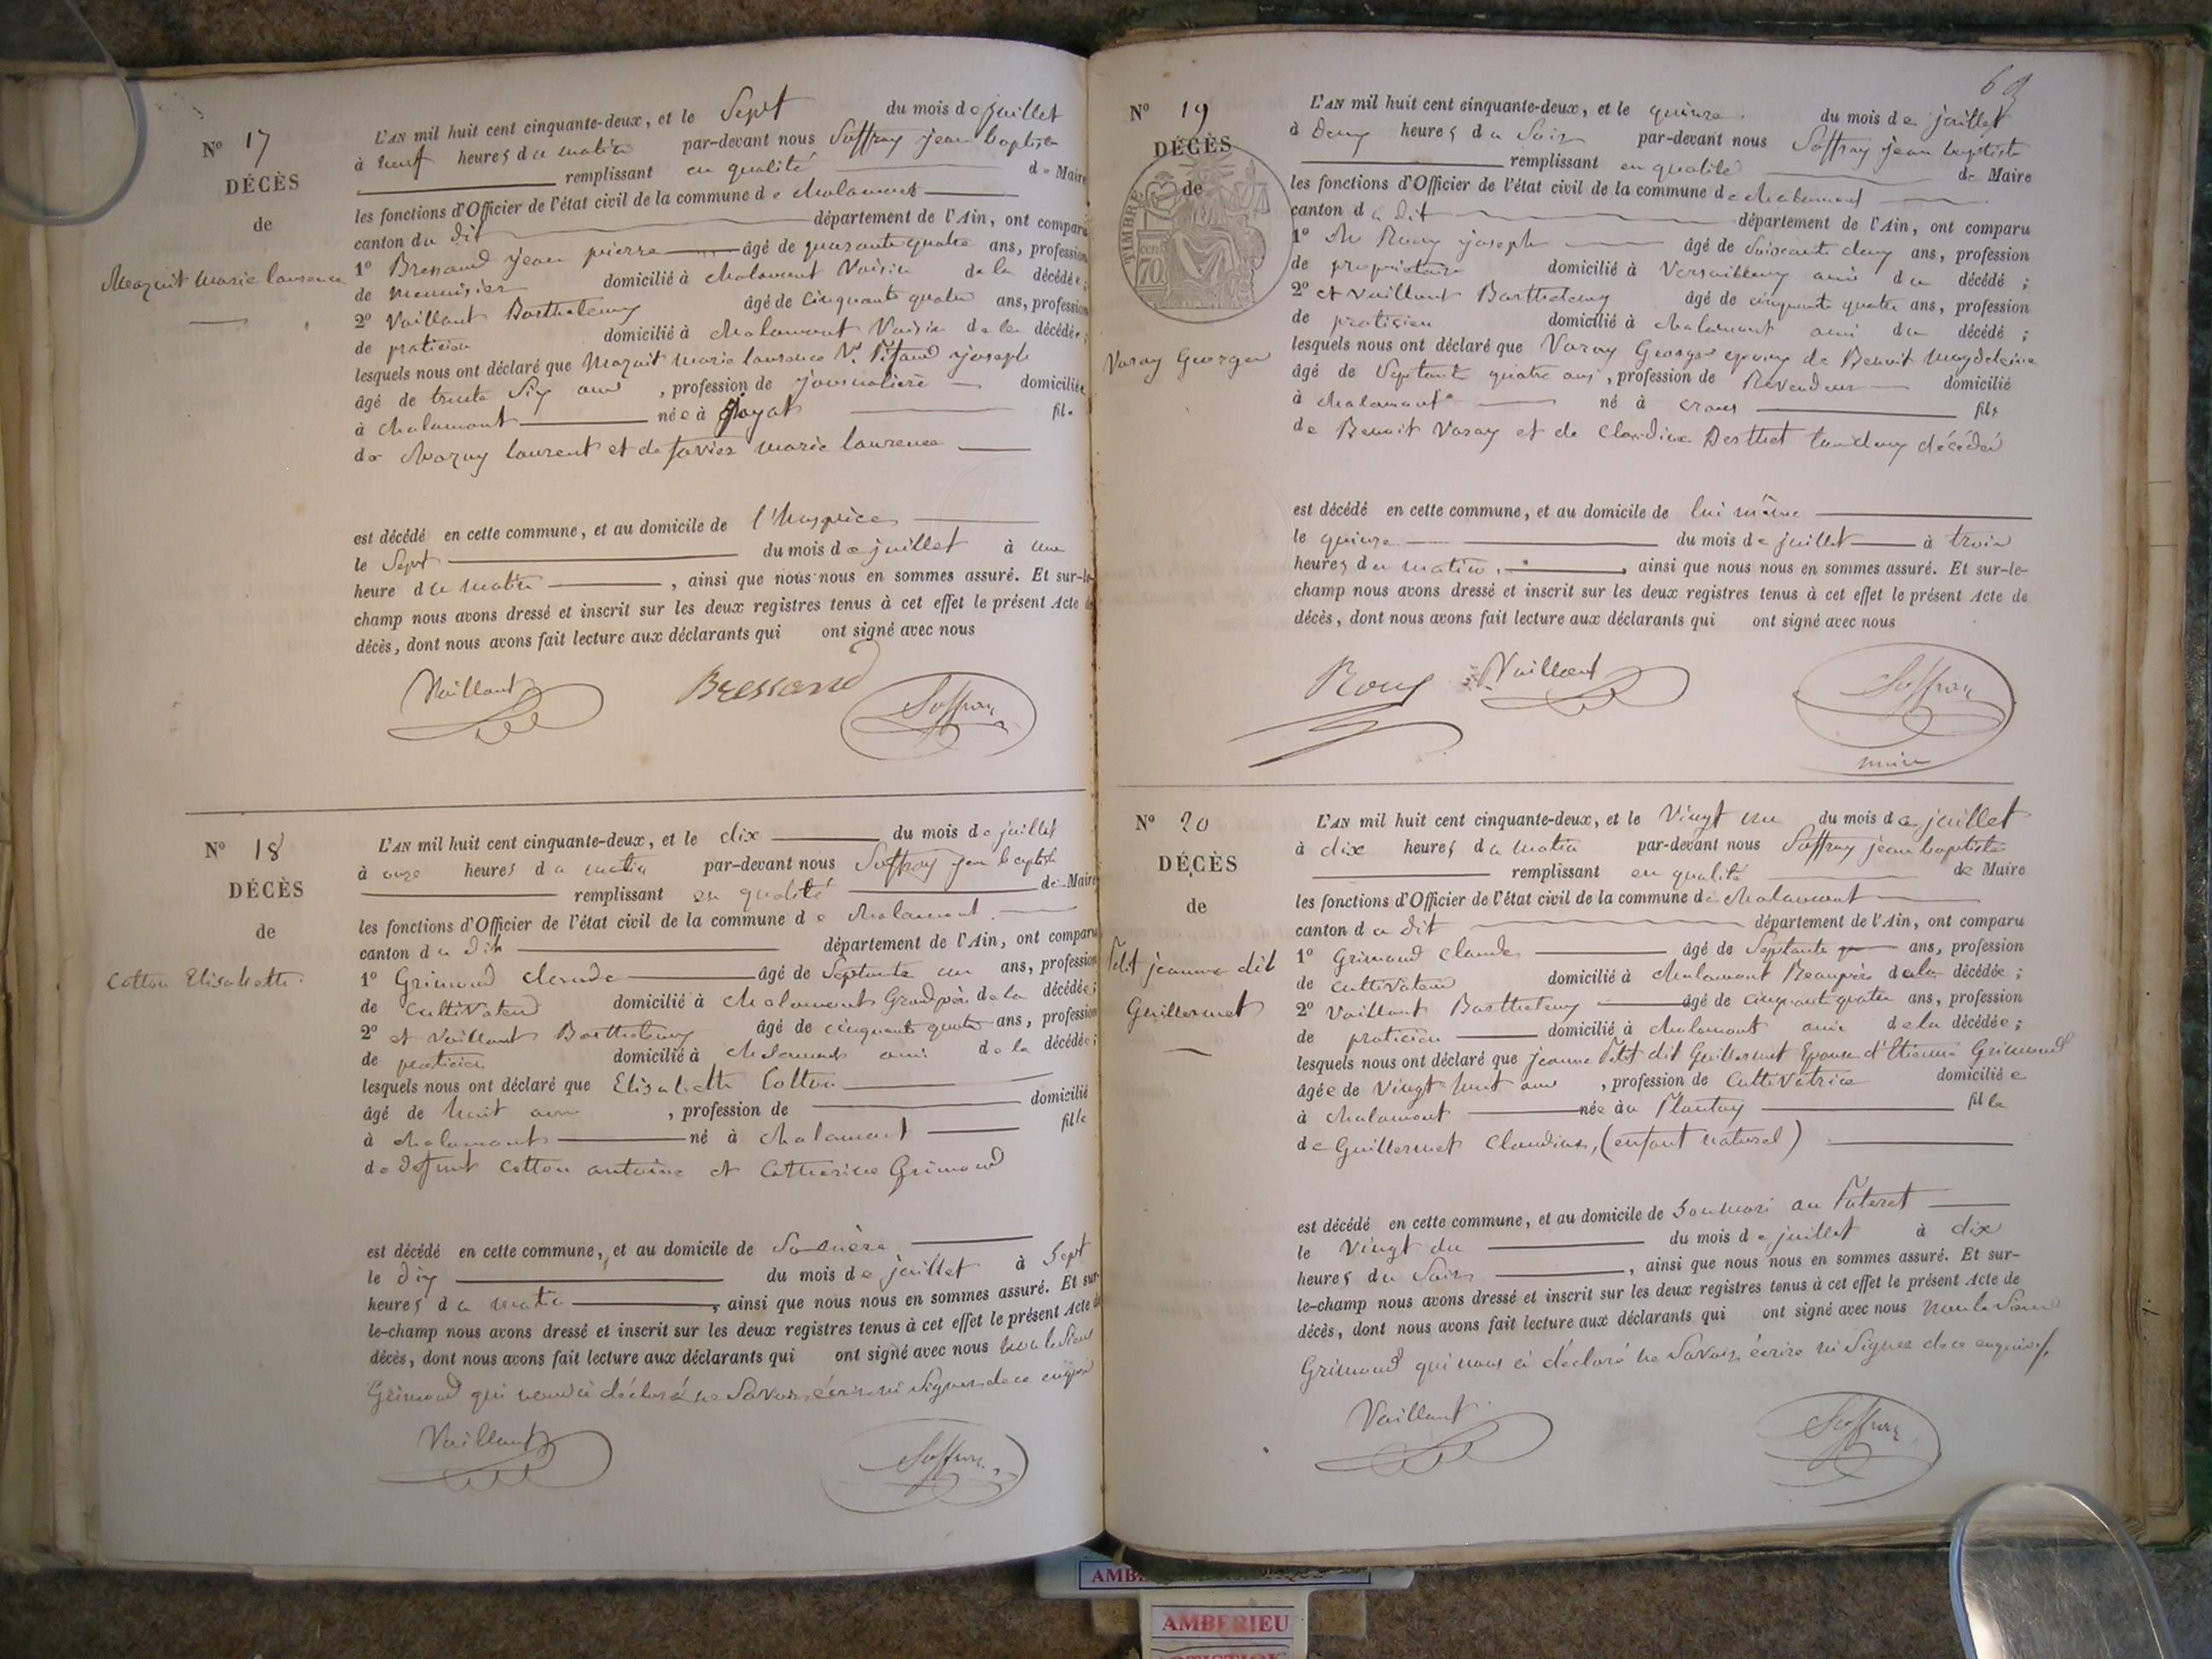 N° 17
DÉCÈS
de
Mazuit Marie laurence
L'AN mil huit cent cinquante-deux, et le Sept du mois de juillet
à neuf heures du matin par-devant nous Soffray jean baptiste
remplissant en qualité de Maire
les fonctions d'Officier de l'état civil de la commune de chalamont
canton du dit département de l'Ain, ont comparu
1° Bressand jean pierre âgé de quarante quatre ans, profession
de Menuisier domicilié à chalamont Voisin de la décédée;
2° Vaillant Barthelemy âgé de cinquante quatre ans, profession
de praticien domicilié à chalamont Voisin de la décédée;
lesquels nous ont déclaré que Mazuit Marie laurence Vve Pitaud joseph
âgé de trente Six ans, profession de journalière domiciliée
à chalamont née à joyat fille
de Mazuy laurent et de favier marie laurence
est décédé en cette commune, et au domicile de l'hospice
le Sept du mois de juillet à une
heure du matin, ainsi que nous nous en sommes assuré. Et sur-le-
champ nous avons dressé et inscrit sur les deux registres tenus à cet effet le présent Acte de
décès, dont nous avons fait lecture aux déclarants qui ont signé avec nous
Vaillant Bressand Soffray
N° 18
DÉCÈS
de
Cotton Elisabette.
L'AN mil huit cent cinquante-deux, et le dix du mois de juillet
à onze heures du matin par-devant nous Soffray jean baptiste
remplissant en qualité de Maire
les fonctions d'Officier de l'état civil de la commune de chalamont
canton du dit département de l'Ain, ont comparu
1° Grimaud claude âgé de Septante un ans, profession
de Cultivateur domicilié à chalamont Grandpère de la décédée;
2° et Vaillant Barthelemy âgé de cinquante quatre ans, profession
de praticien domicilié à chalamont ami de la décédée;
lesquels nous ont déclaré que Elisabette Cotton
âgé de huit ans, profession de domicilié
à chalamont né à chalamont fille
de defunt Cotton antoine et Catherine Grimaud
est décédé en cette commune, et au domicile de Sa mère
le dix du mois de juillet à Sept
heures du matin, ainsi que nous nous en sommes assuré. Et sur-
le-champ nous avons dressé et inscrit sur les deux registres tenus à cet effet le présent Acte de
décès, dont nous avons fait lecture aux déclarants qui ont signé avec nous non le Sieur
Grimaud qui nous a déclaré ne Savoir écrire ni Signer de ce enquis
Vaillant Soffray
69
N° 19
DÉCÈS
de
TIMBRE
70
Varay George
L'AN mil huit cent cinquante-deux, et le quinze du mois de juillet
à deux heures du Soir par-devant nous Soffray jean baptiste
remplissant en qualité de Maire
les fonctions d'Officier de l'état civil de la commune de chalamont
canton du dit département de l'Ain, ont comparu
1° Mr Rouy joseph âgé de Soixante deux ans, profession
de propriétaire domicilié à Versailleux ami du décédé;
2° et Vaillant Barthelemy âgé de cinquante quatre ans, profession
de praticien domicilié à chalamont ami du décédé;
lesquels nous ont déclaré que Varay George epoux de Benoit Magdeleine
âgé de Septante quatre ans, profession de Revendeur domicilié
à chalamont né à crans fils
de Benoit Varay et de Claudine Berthet tous deux décédés
est décédé en cette commune, et au domicile de lui même
le quinze du mois de juillet à trois
heures du matin, ainsi que nous nous en sommes assuré. Et sur-le-
champ nous avons dressé et inscrit sur les deux registres tenus à cet effet le présent Acte de
décès, dont nous avons fait lecture aux déclarants qui ont signé avec nous
Rouy Vaillant Soffray
maire
N° 20
DÉCÈS
de
Petit jeanne dit
Guillermet
L'AN mil huit cent cinquante-deux, et le Vingt un du mois de juillet
à dix heures du matin par-devant nous Soffray jean baptiste
remplissant en qualité de Maire
les fonctions d'Officier de l'état civil de la commune de chalamont
canton du dit département de l'Ain, ont comparu
1° Grimaud Claude âgé de Septante ans, profession
de cultivateur domicilié à chalamont Beaupère de la décédée;
2° Vaillant Barthelemy âgé de cinquante quatre ans, profession
de praticien domicilié à chalamont ami de la décédée;
lesquels nous ont déclaré que jeanne Petit dit Guillermet Epouse d'Etienne Grimaud
âgée de Vingt huit ans, profession de Cultivatrice domiciliée
à chalamont née au Plantay fille
de Guillermet Claudine, (enfant naturel)
est décédé en cette commune, et au domicile de Son mari au
le Vingt du du mois de juillet à dix
heures du Soir, ainsi que nous nous en sommes assuré. Et sur-
le-champ nous avons dressé et inscrit sur les deux registres tenus à cet effet le présent Acte de
décès, dont nous avons fait lecture aux déclarants qui ont signé avec nous non le Sieur
Grimaud qui nous a déclaré ne Savoir écrire ni Signer de ce enquis
Vaillant Soffray
AMBERIEU